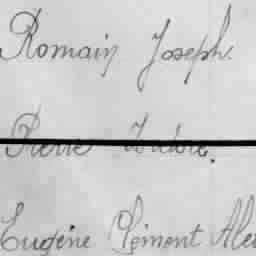 Romain Joseph
Pierre Isidore.
Eugène Clément Alex